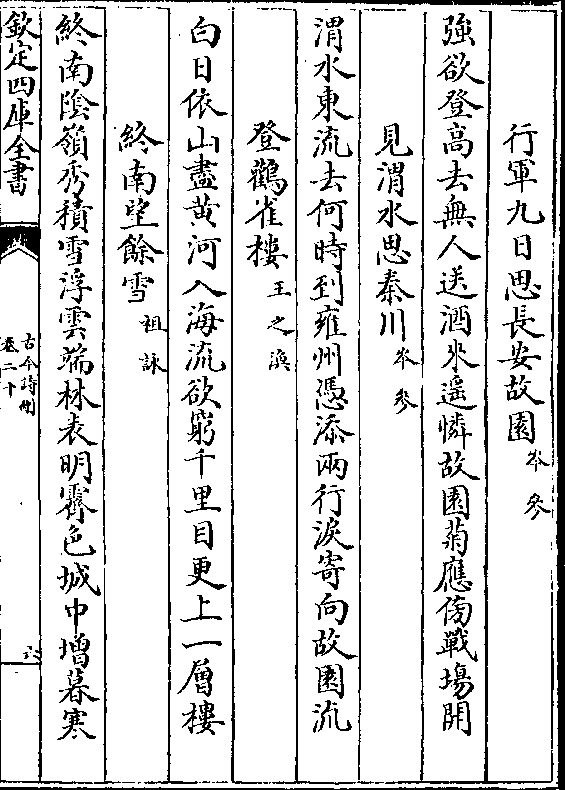 行軍九日思長安故園岑參
強欲登高去無人送酒來遥憐故園菊應傍戰場開
見渭水思秦川岑參
渭水東流去何時到雍州憑添兩行淚寄向故園流
登鸛雀樓王之渙
白日依山盡黄河入海流欲窮千里目更上一層樓
終南望餘雪祖詠
終南陰嶺秀積雪浮雲端林表明霽色城中增暮寒
欽定四庫全書
古今詩刪
卷二十
六